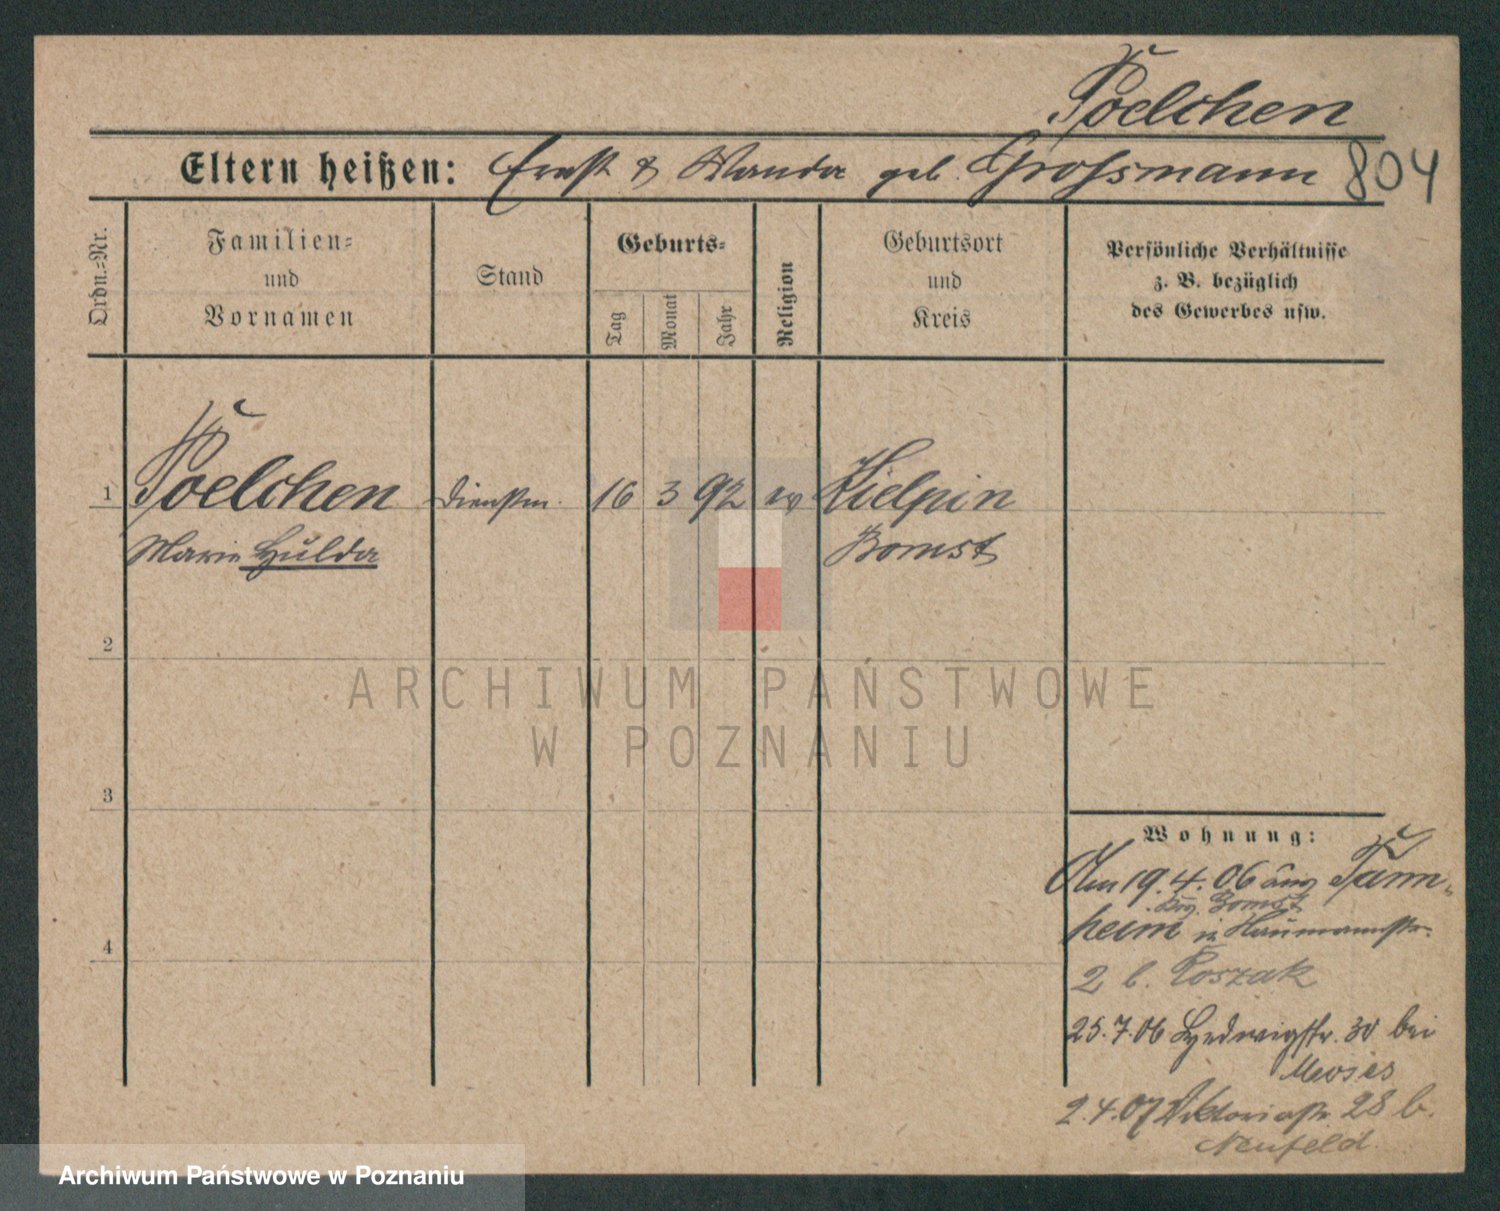 Poelchen
Eltern heißen: Ernst & Wanda geb. Grossmann 804
Ordn.-Nr.
Familien-
und
Vornamen
Stand
Geburts-
Tag
Monat
Jahr
Religion
Geburtsort
und
Kreis
Persönliche Verhältnisse
z. B. bezüglich
des Gewerbes usw.
1 Poelchen Dienstm. 16 3 92 ev Kielpin
Marie Hulda Bomst
2
ARCHIWUM PAŃSTWOWE
W POZNANIU
3
4
Wohnung:
Am 19.4.06 Tann-
Bomst
heim in Naumannstr.
2 b. Koszak
25.7.06 Hedwigstr. 30 bei
Moses
2.4.07 Viktoriastr. 28 b.
Neufeld
Archiwum Państwowe w Poznaniu